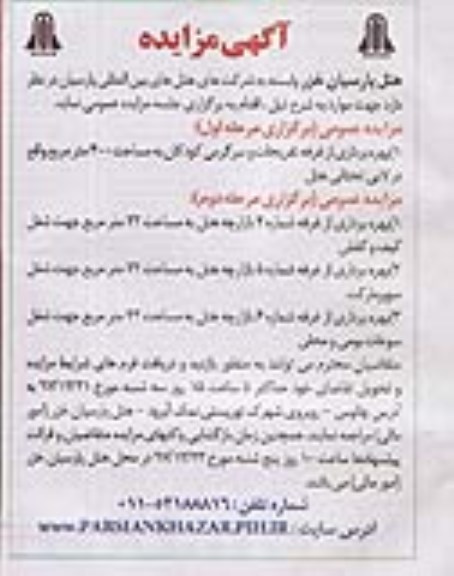 آگهی مزایده
هتل پارسیان خزر وابسته به شرکت های هتل های بین المللی پارسیان در نظر
دارد جهت موارد به شرح ذیل ، اقدام به برگزاری جلسه مزایده عمومی نماید.
مزایده عمومی (برگزاری مرحله اول)
۱)بهره برداری از غرفه تفریحات و سرگرمی کودکان به مساحت ۴۰۰ متر مربع واقع
در لابی تحتانی هتل
مزایده عمومی (برگزاری مرحله دوم)
۱)بهره برداری از غرفه شماره ۲ بازارچه هتل به مساحت ۲۲ متر مربع جهت شغل
کیف و کفش
۲)بهره برداری از غرفه شماره ۵ بازارچه هتل به مساحت ۲۲ متر مربع جهت شغل
سوپرمارکت
۳)بهره برداری از غرفه شماره ۶ بازارچه هتل به مساحت ۲۲ متر مربع جهت شغل
سوغات بومی و محلی
متقاضیان محترم می توانند به منظور بازدید و دریافت فرم های شرایط مزایده
و تحویل تقاضای خود حداکثر تا ساعت ۱۵ روز سه شنبه مورخ به
آدرس چالوس - روبروی شهرک توریستی نمک آبرود - هتل پارسیان خزر (امور
مالی) مراجعه نمایند. همچنین زمان بازگشایی پاکتهای مزایده متقاضیان و قرائت
پیشنهادها ساعت ۱۰ روز پنج شنبه مورخ در محل هتل پارسیان خزر
(امور مالی) می باشد.
شماره تلفن : ۵۲۱۸۸۸۱۶-۰۱۱
آدرس سایت : www.PARSIANKHAZAR.PIHI.IR